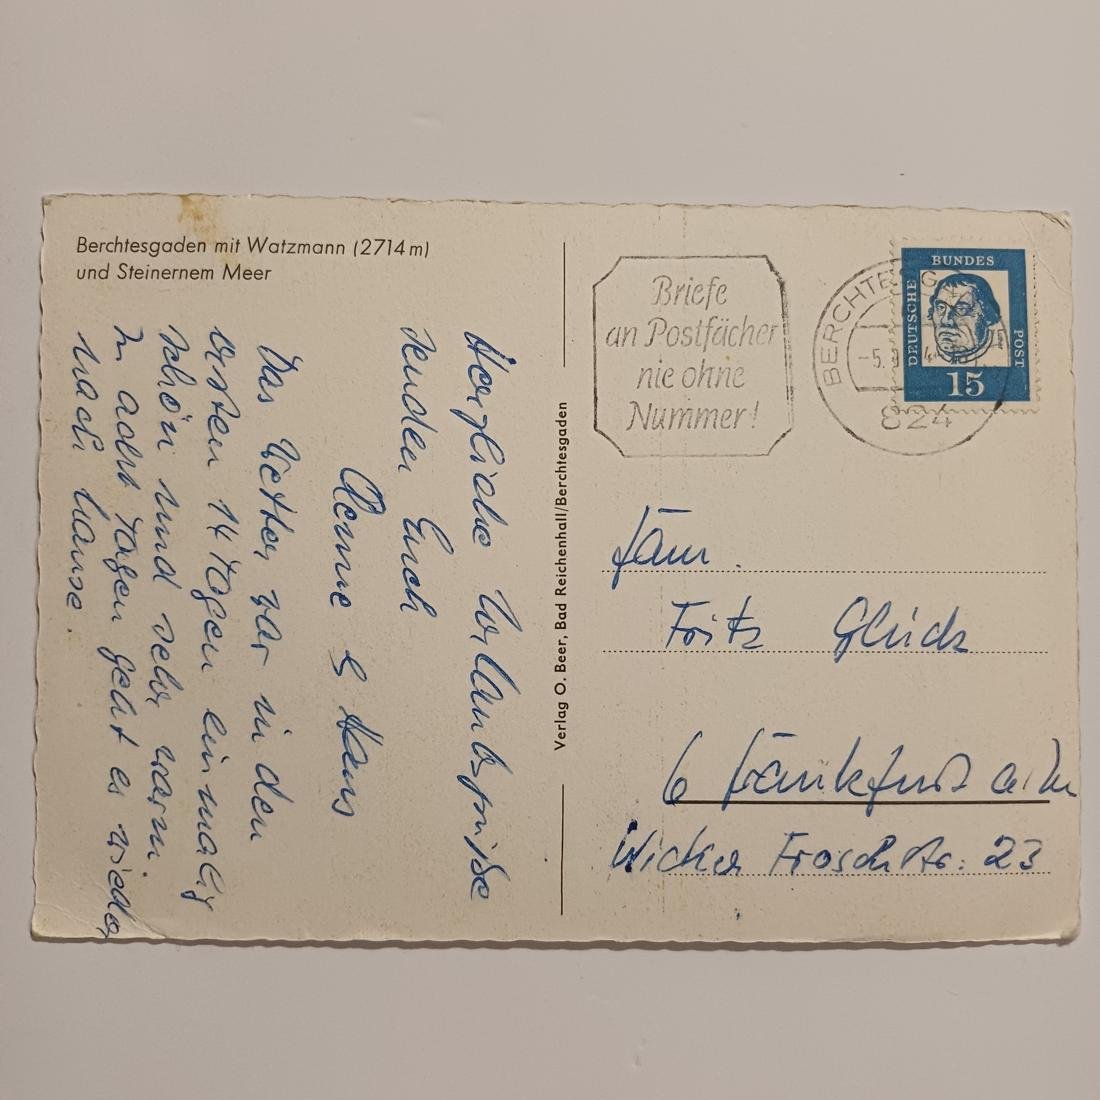 Berchtesgaden mit Watzmann (2714 m)
und Steinernem Meer
Herzliche Urlaubsgrüße
senden Euch
Hans
Das Wetter war in den
ersten 14 Tagen einmalig
schön und sehr warm
In acht Tagen geht es wieder
nach Hause
Verlag O. Beer, Bad Reichenhall/Berchtesgaden
Briefe
an Postfächer
nie ohne
Nummer!
BERCHTESGA
-5.
824
DEUTSCHE
BUNDES
POST
15
Fam.
Fritz Glück
6 Frankfurt a/M
Wicker Froschstr. 23